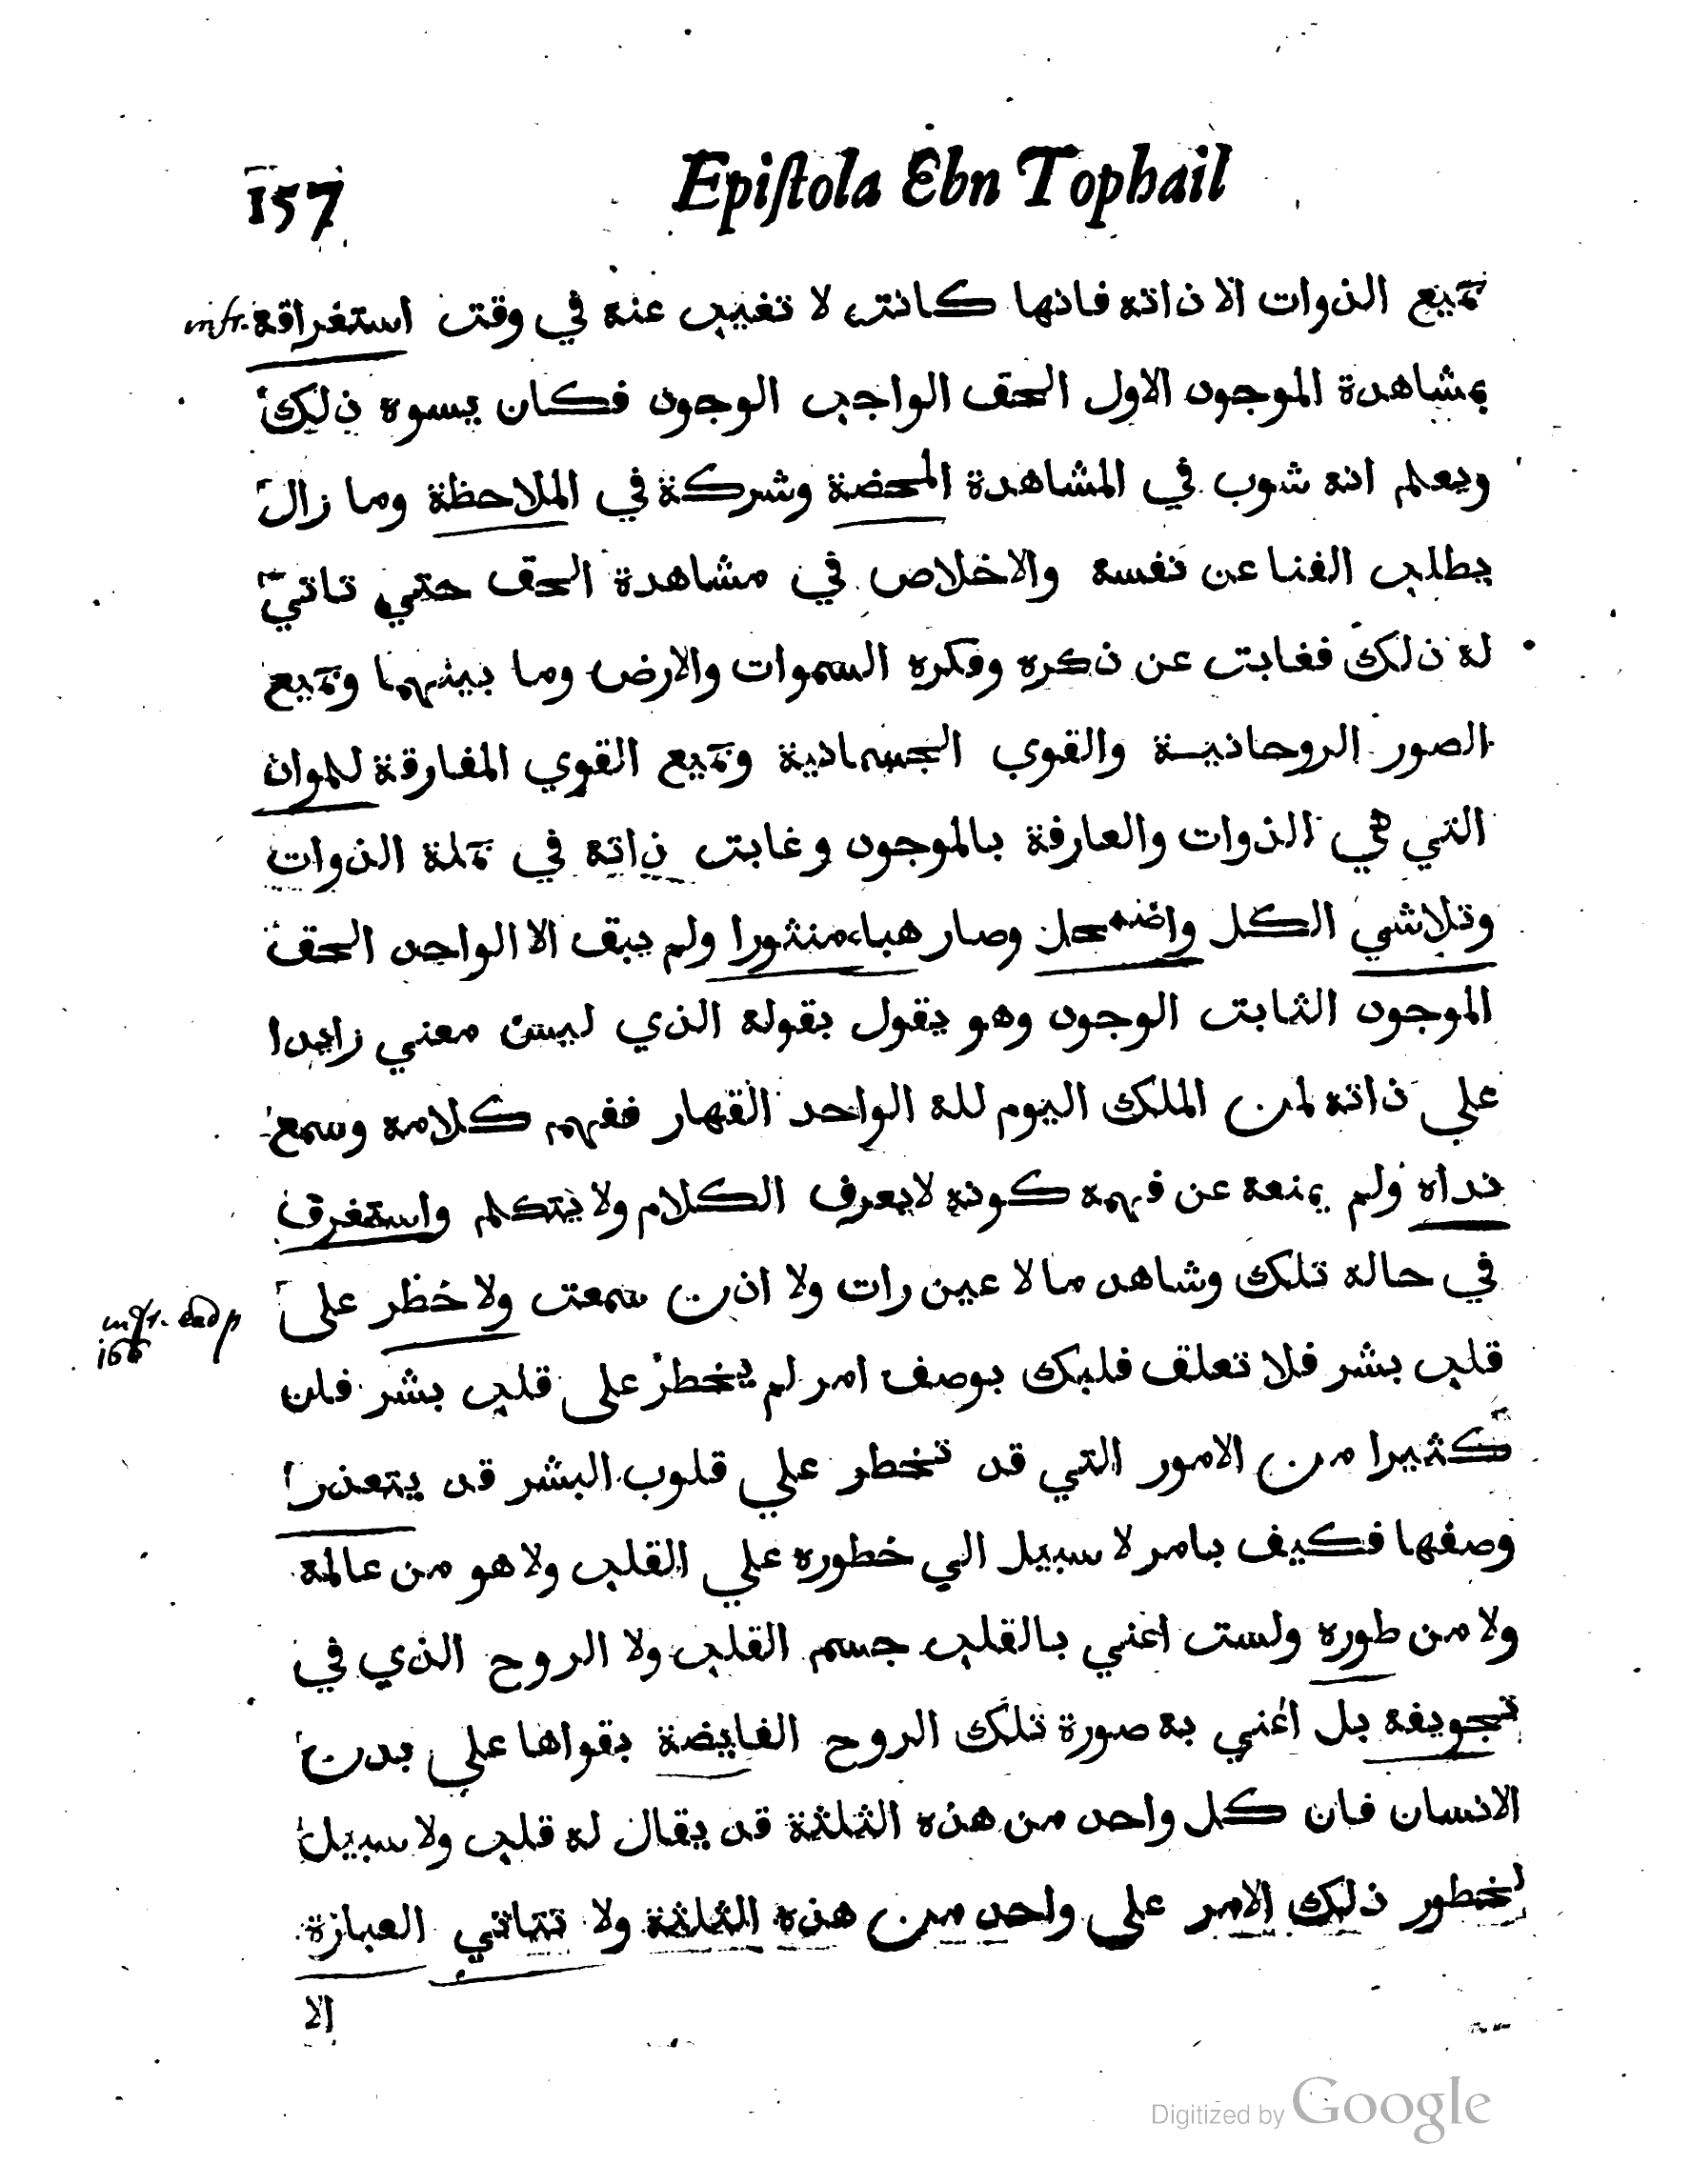 157 Epiſtola Ebn Tophail
جميع الذوات الا ذاته فانها كانت لا تغيب عنه في وقت استغراقه infr.
بمشاهدة الموجود الاول الحق الواجب الوجود فكان يسوه ذلك
ويعلم انه شوب في المشاهدة المحضة وشركة في الملاحظة وما زال
يطلب الفنا عن نفسه والاخلاص في مشاهدة الحق حتي تاتي
له ذلك فغابت عن ذكره وفكره السموات والارض وما بينهما وجميع
الصور الروحانية والقوي الجسمانية وجميع القوي المفارقة للمواد
التي هي الذوات والعارفة بالموجود وغابت ذاته في جملة الذوات
وتلاشي الكل واضمحل وصار هباء منثورا ولم يبق الا الواحد الحق
الموجود الثابت الوجود وهو يقول بقوله الذي ليس معني زايدا
علي ذاته لمن الملك اليوم لله الواحد القهار ففهم كلامه وسمع
نداه ولم يمنعه عن فهمه كونه لا يعرف الكلام ولا يتكلم واستغرق
في حاله تلك وشاهد ما لا عين رات ولا اذن سمعت ولا خطر على
166
قلب بشر فلا تعلق قلبك بوصف امر لم يخطر على قلب بشر فان
كثيرا من الامور التي قد تخطر علي قلوب البشر قد يتعذر
وصفها فكيف بامر لا سبيل الي خطوره علي القلب ولا هو من عالمه
ولا من طوره ولست اعني بالقلب جسم القلب ولا الروح الذي في
تجويفه بل اعني به صورة تلك الروح الفايضة بقواها علي بدن
الانسان فان كل واحد من هذه الثلثة قد يقال له قلب ولا سبيل
لخطور ذلك الامر على واحد من هذه الثلثة ولا تتاتي العبارة
الا
Digitized by Google